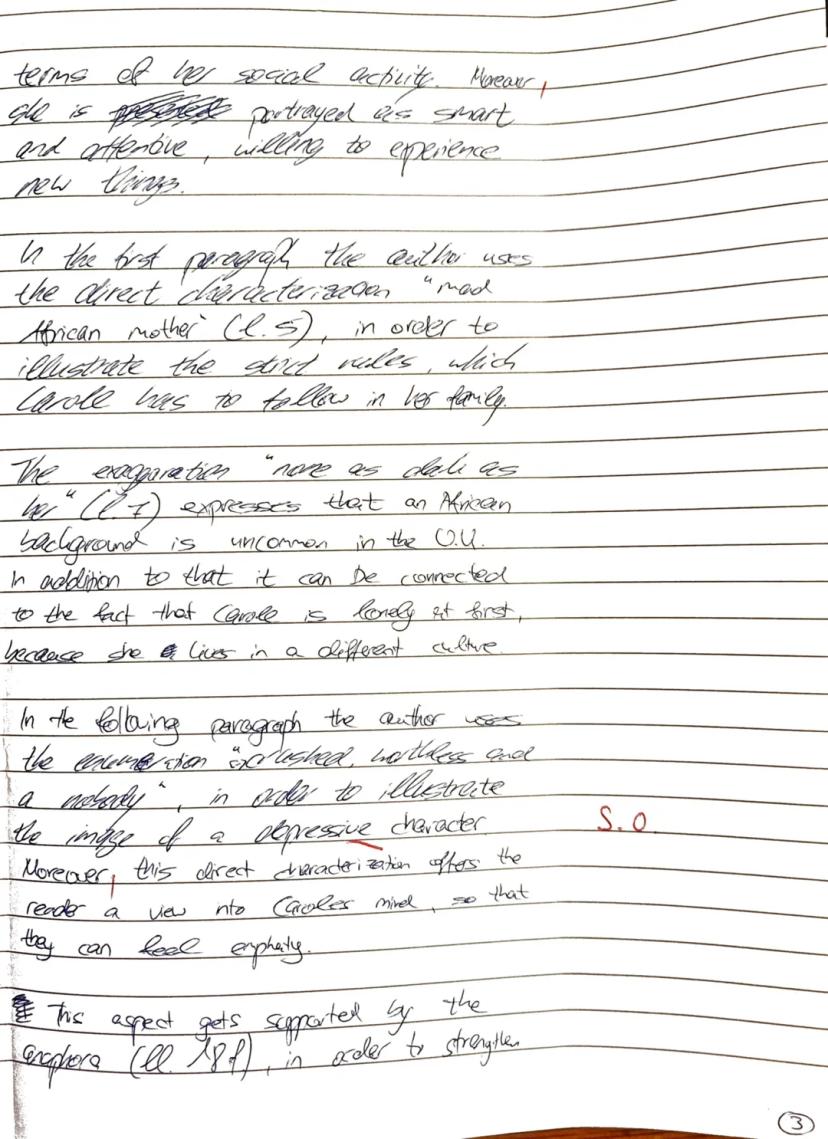 terms of her social activity. Moreover,
she is portrayed as smart
and attentive, willing to experience
new things.
In the first paragraph the author uses
the direct characterization "mad
African mother" (l. 5), in order to
illustrate the strict rules, which
Carole has to follow in her family.
The exaggaration "none as dark as
her" (l. 7) expresses that an African
background is uncommon in the O.U.
In addition to that it can be connected
to the fact that Carole is lonely at first,
because she lives in a different culture
In the following paragraph the author uses
the enumeration "crushed, worthless and
a nobody", in order to illustrate
the image of a depressive character S.O.
Moreover, this direct characterization offers the
reader a view into Caroles mind, so that
they can feel emphaty.
This aspect gets supported by the
anaphora (ll. 18f), in order to strengthen
3